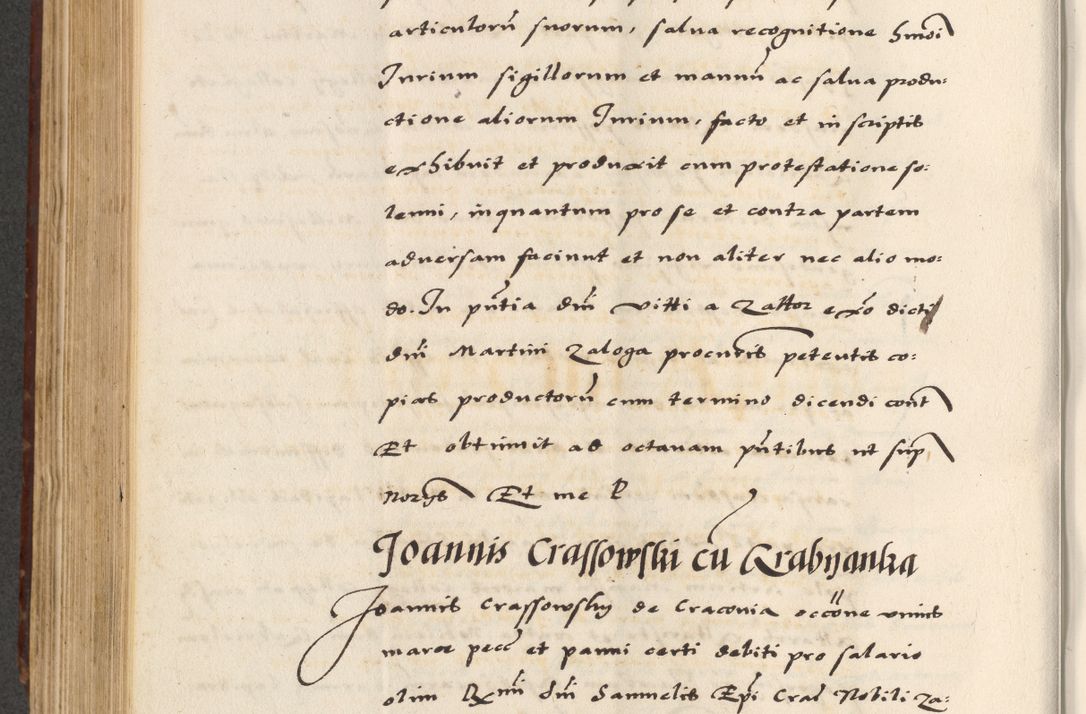 articulorũ suorum, salua recognitione hmõi
Jurium sigillorum et manuũ ac salua produ:
ctione aliorum Jurium, facto et in scriptis
exhibuit et produxit cum protestatione so:
lenni, inquantum pro se et contra partem
aduersam faciunt et non aliter nec alio mo:
do. In pñtia dñi Vitti a Zattor exõ dicti
dñi Martini Zaloga procuris petentis co:
pias productorũ cum termino dicendi cont
Et obtinuit ad octauam pñtibus ut sup
Norys Et me P
Joannis Crassowski cũ Krabyanka
Joannis Crassowsky de Craconia occõne unius
marce pecc et panni certi debiti pro salario
olim Rmi dñi Samuelis Epi Crac Nobili Za: